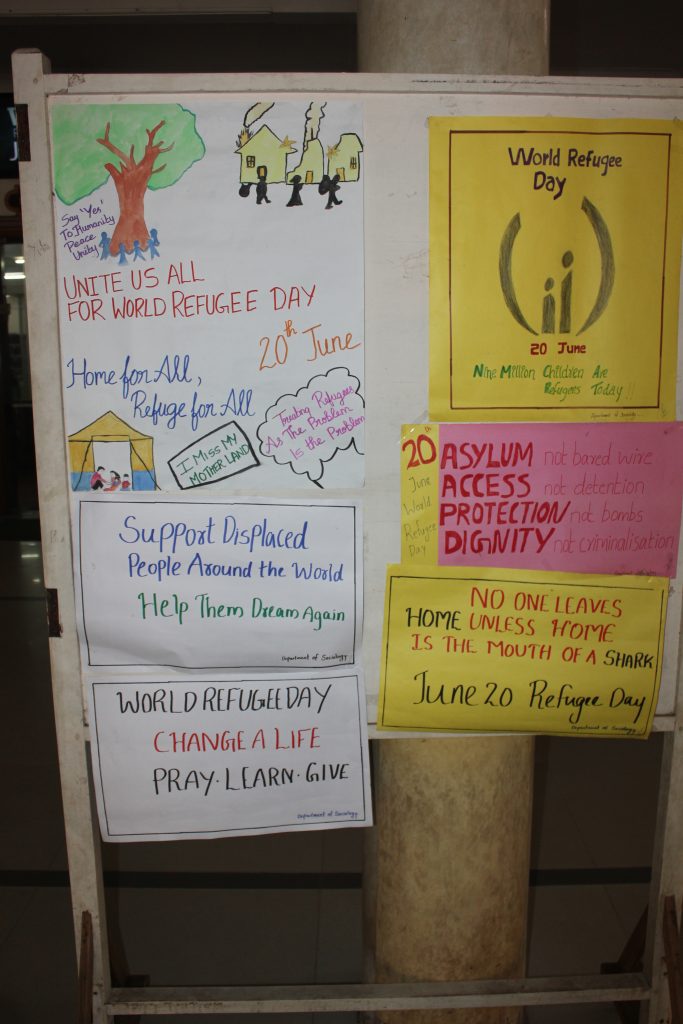 Say 'Yes'
To Humanity
Peace
Unity
UNITE US ALL
FOR WORLD REFUGEE DAY
20th June
Home for All,
Refuge for All
I MISS MY
MOTHERLAND
Treating Refugees
As The Problem
Is the Problem
Support Displaced
People Around the World
Help Them Dream Again
Department of Sociology
WORLD REFUGEE DAY
CHANGE A LIFE
PRAY · LEARN · GIVE
Department of Sociology
World Refugee
Day
20 June
Nine Million Children Are
Refugees Today!!
Department of Sociology
20th
June
World
Refugee
Day
ASYLUM not bared wire
ACCESS not detention
PROTECTION not bombs
DIGNITY not criminalisation
NO ONE LEAVES
HOME UNLESS HOME
IS THE MOUTH OF A SHARK
June 20 Refugee Day
Department of Sociology